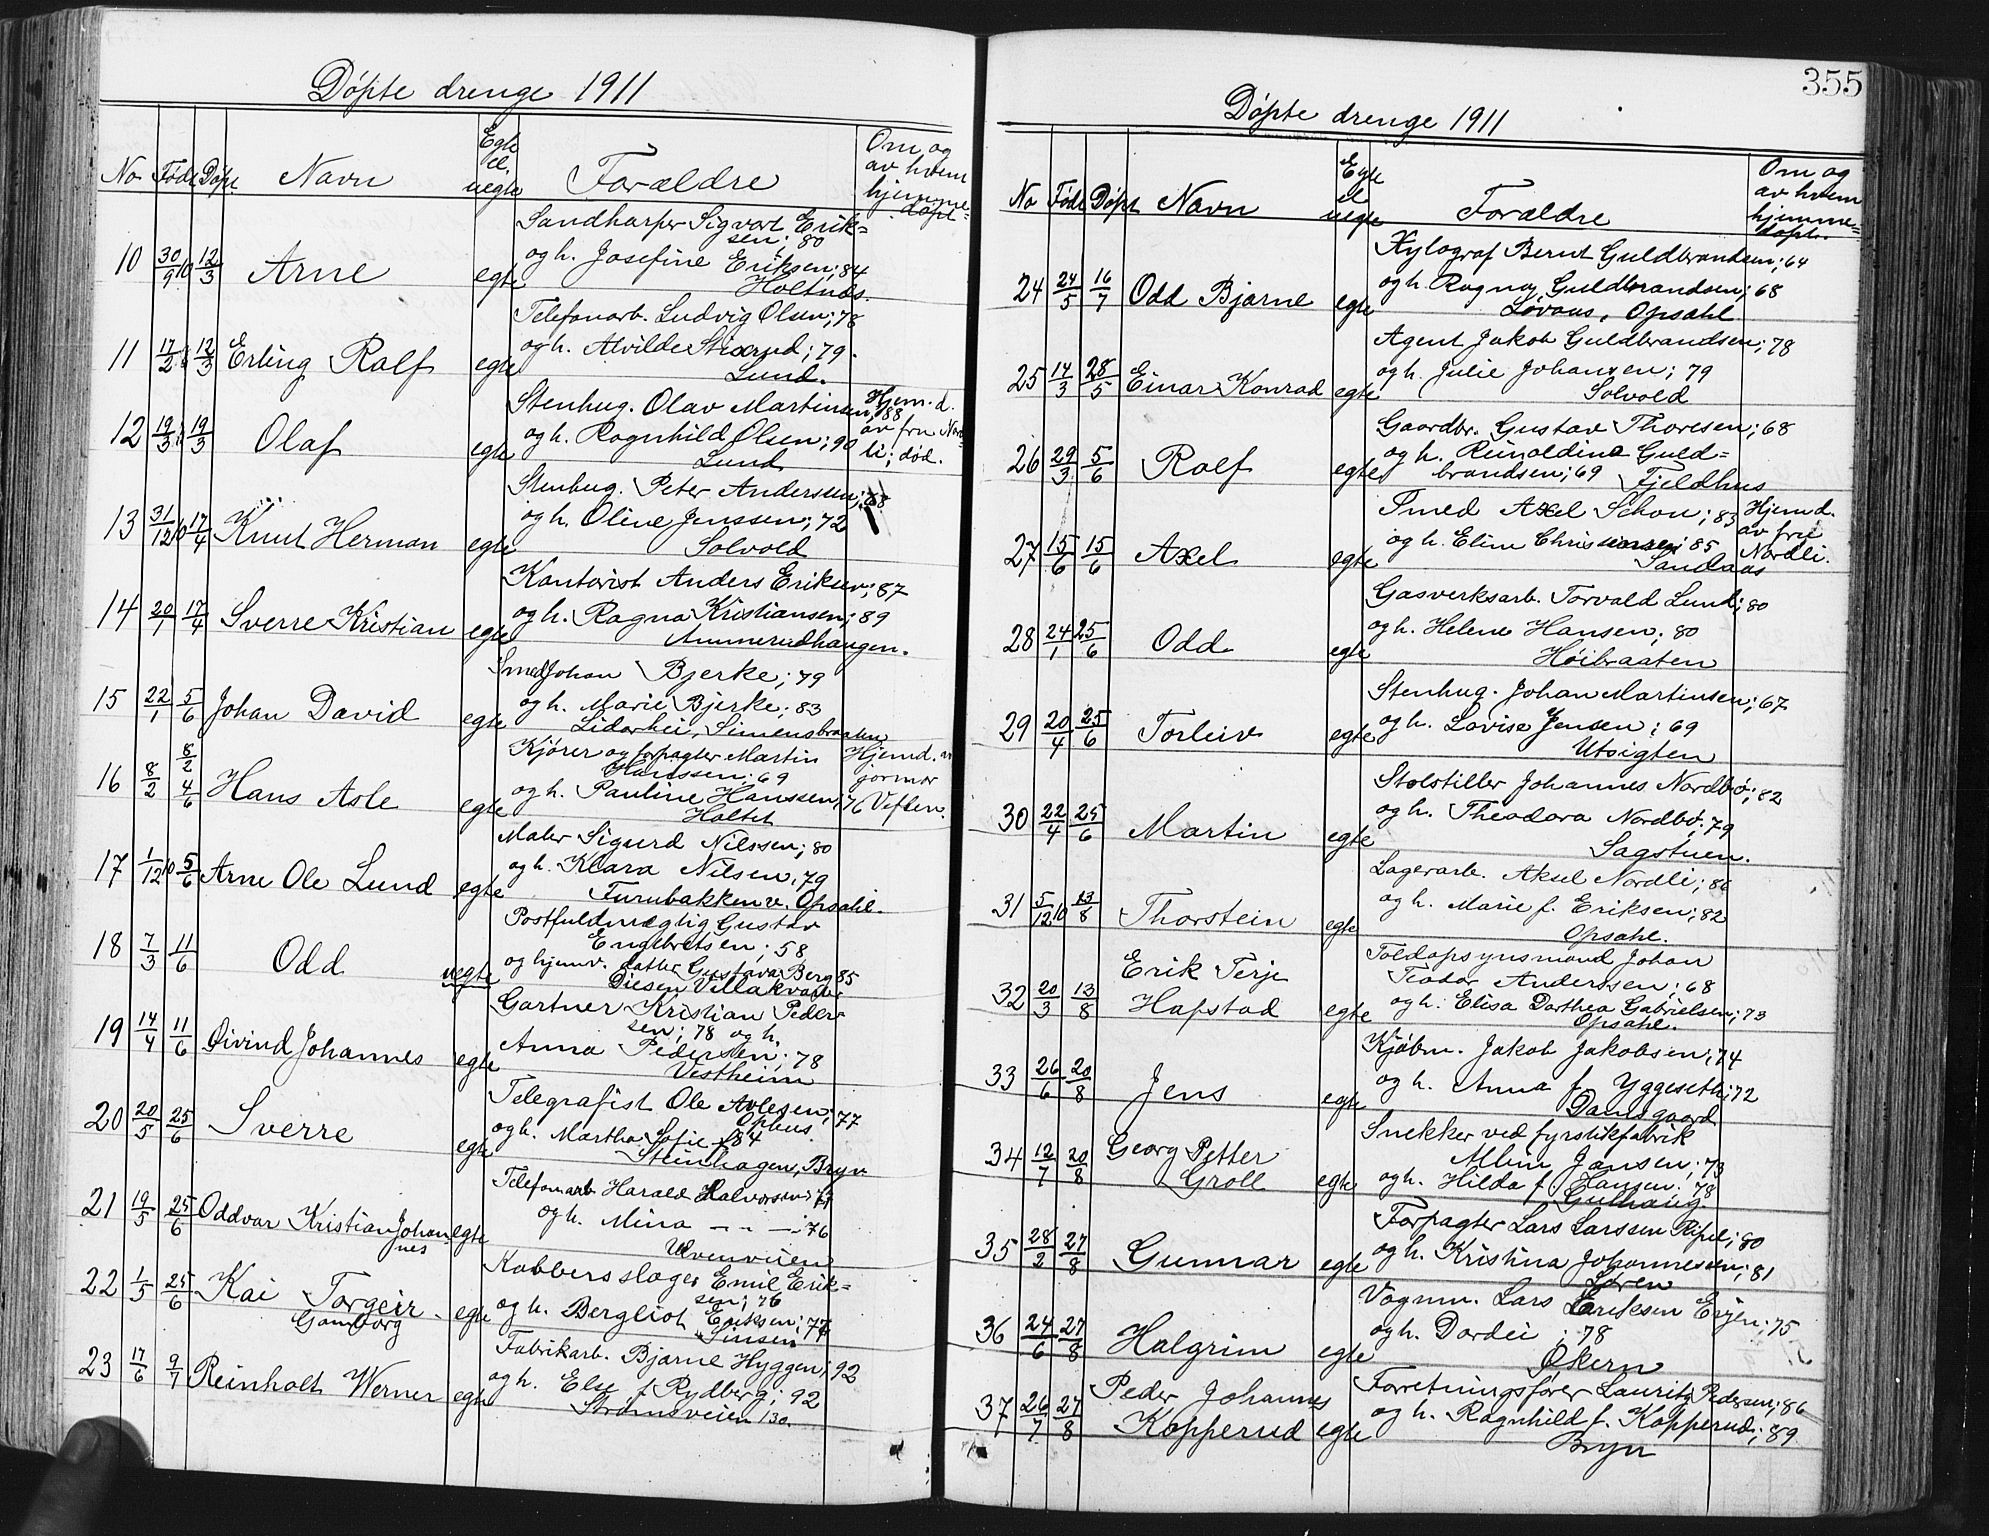 Døpte drenge 1911
No Født Døpt Navn Egte el. uegte Forældre Om og av hvem hjemme= døpt
10 30/9 10 12/3 Arne egte Sandharper Sigvart Erik=
sen; 80
og h. Josefine Eriksen; 84
Holtnæs.
11 17/2 12/3 Erling Ralf egte Telefonarb. Ludvig Olsen; 78
og h. Alvilde Stixrud; 79.
Lund.
12 19/3 19/3 Olaf egte Stenhug. Olav Martinsen, 88 Hjem. d.
og h. Ragnhild Olsen; 90 av fru Nord
Lund li; død.
13 31/12 10 17/4 Knut Herman egte Stenhug. Peter Andersen; 68
og h. Oline Jenssen; 72
Solvold
14 20/1 17/4 Sverre Kristian egte Kontorist Anders Eriksen; 87
og h. Ragna Kristiansen; 89
Ammerudhaugen.
15 22/1 5/6 Johan David egte Smed Johan Bjerke; 79
og h. Marie Bjerke; 83
Liderhei, Simensbraaten
16 8/2 8/2 4/6 Hans Asle egte Kjører og forpagter Martin Hjemd. av
Hanssen; 69 jormor
og h. Pauline Hanssen, 76 Veflen.
Holtet
17 1/12 10 5/6 Arne Ole Lund egte Maler Sigurd Nilssen; 80
og h. Klara Nilsen, 79
Furubakken v. Opsahl.
18 7/3 11/6 Odd uegte Postfuldmægtig Gustav
Engebretsen; 58
og hjemv. datter Gustava Berg 85
Diesen Villa
19 14/4 11/6 Øivind Johannes egte Gartner Kristian Peder=
sen; 78 og h.
Anna Pedersen; 78
Vestheim
20 20/5 25/6 Sverre egte Telegrafist Ole Avlesen; 77
Ophus.
og h. Martha Sofie 84
Steinhagen, Bryn
21 19/5 25/6 Oddvar Kristian Johan
nes egte Telefonarb Harald Halvorsen;
og h. Mina — " — ; 76
Ulvenveien
22 1/5 25/6 Kai Torgeir
Gamborg egte Kobberslager Emil Erik=
sen; 76
og h. Bergliot Eriksen; 77
Sinsen
23 17/6 9/7 Reinholt Werner egte Fabrikarb. Bjarne Hyggen; 92
og h. Else f. Rydberg; 92
Strømsveien 130.
355
Døpte drenge 1911
No Født Døpt Navn Egte el uegte Forældre Om og av hvem hjemme= døpt.
24 24/5 16/7 Odd Bjarne egte Xylograf Bernt Guldbrandsen; 64
og h. Ragna Guldbrandsen; 68
Løvaas, Opsahl
25 14/3 28/5 Einar Konrad egte Agent Jakob Guldbrandsen; 78
og h. Julie Johansen; 79
Solvold
26 29/3 5/6 Ralf egte Gaardbr. Gustav Thoresen; 68
og h. Reinoldine Guld=
brandsen; 69 Fjeldhus
27 15/6 15/6 Axel egte Smed Axel Schou; 83 Hjemd.
og h. Eline Christiansen; 85 av fru
Sandaas Nordli.
28 24/1 25/6 Odd egte Gasverksarb. Torvald Lund; 80
og h. Helene Hansen; 80
Høibraaten
29 20/4 25/6 Torleiv egte Stenhug. Johan Martinsen; 67
og h. Lovise Jensen; 69
Utsigten
30 22/4 25/6 Martin egte Stolstiller Johannes Nordbø; 82
og h. Theodora Nordbø; 79
Sagstuen.
31 5/12 10 13/8 Thorstein egte Lagerarb. Aksel Nordli; 86
og h. Marie f. Eriksen; 82
Opsahl.
32 20/3 13/8 Erik Terje
Hafstad egte Toldopsynsmand Johan
Teodor Anderssen; 68
og h. Elisa Dorthea Gabrielsen; 73
Opsahl.
33 26/6 20/8 Jens egte Kjøbm. Jakob Jakobsen, 74
og h. Anna f. Yggeseth; 72
Damsgaard
34 12/7 20/8 Georg Petter
Groll egte Snekker ved fyrstikfabrik
Albin Jansen; 73
og h. Hilda f. Hansen; 78
Gulhaug.
35 28/2 27/8 Gunnar egte Forpagter Lars Larssen Ripel; 80
og h. Kristina Johannesen; 81
Løren
36 24/6 27/8 Halgrim egte Vognm. Lars Eriksen Erjen; 75
og h. Dordei; 78
Økern
37 26/7 27/8 Peder Johannes
Kopperud egte Forretningsfører Lauritz Pedersen; 86
og h. Ragnhild f. Kopperud; 89
Bryn